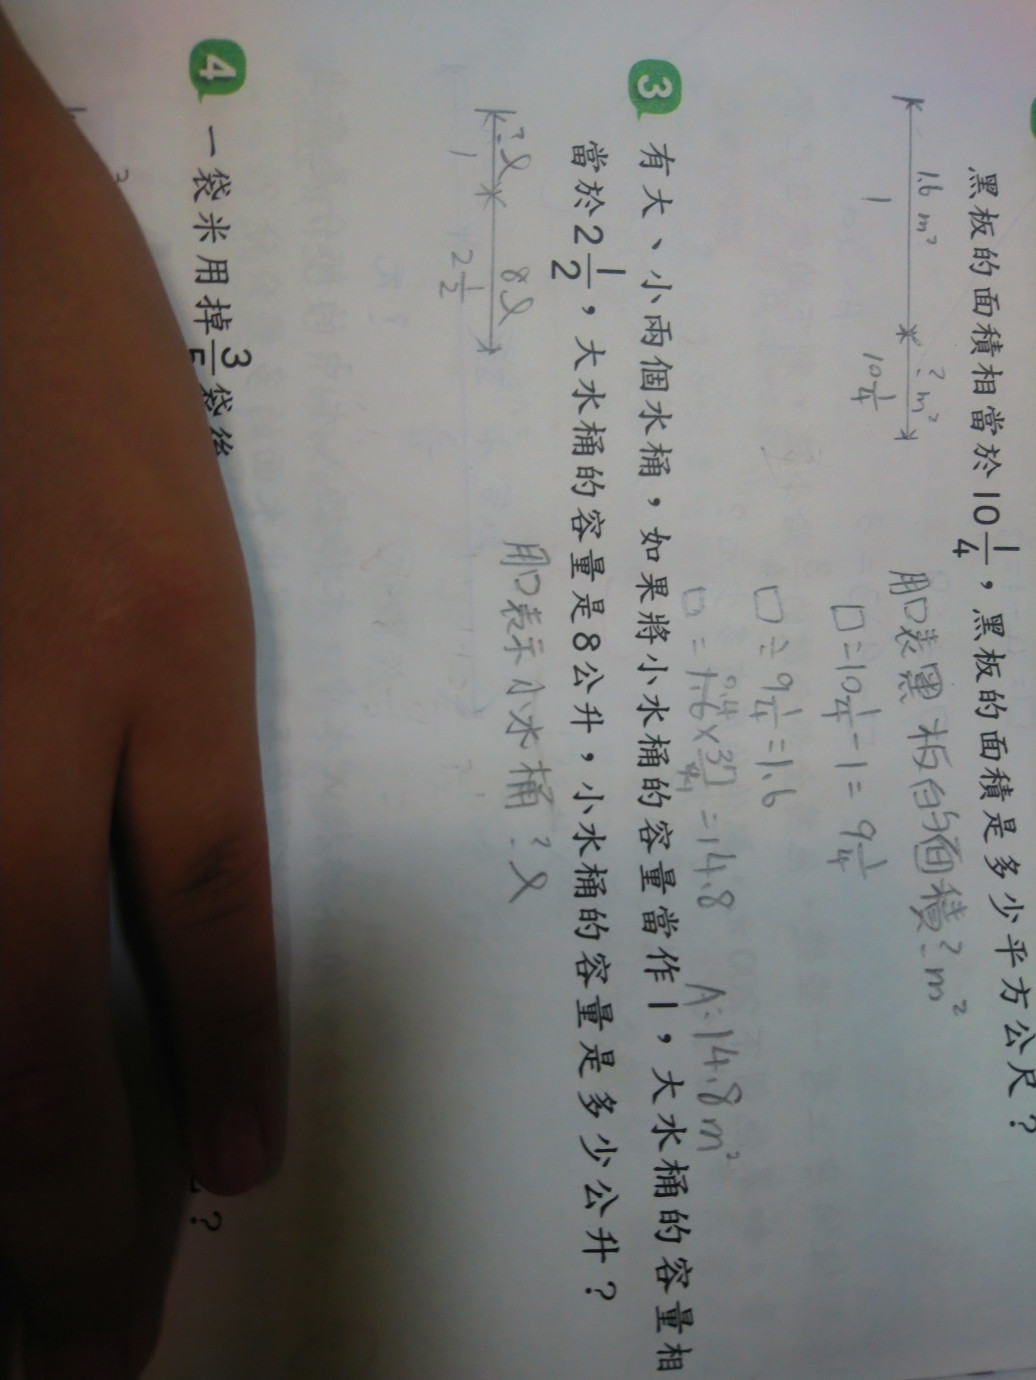 黑板的面積相當於10 1/4，黑板的面積是多少平方公尺？
1.6 m²
? m²
1
10 1/4
用口表黑板的面積?m²
□=10 1/4-1=9 1/4
□÷9 1/4=1.6
□=1.6×37/4=14.8 A:14.8m²
0.4
3 有大、小兩個水桶，如果將小水桶的容量當作1，大水桶的容量相
當於2 1/2，大水桶的容量是8公升，小水桶的容量是多少公升？
?ℓ
8ℓ
1
2 1/2
用口表示小水桶?ℓ
4 一袋米用掉3/5袋後
？